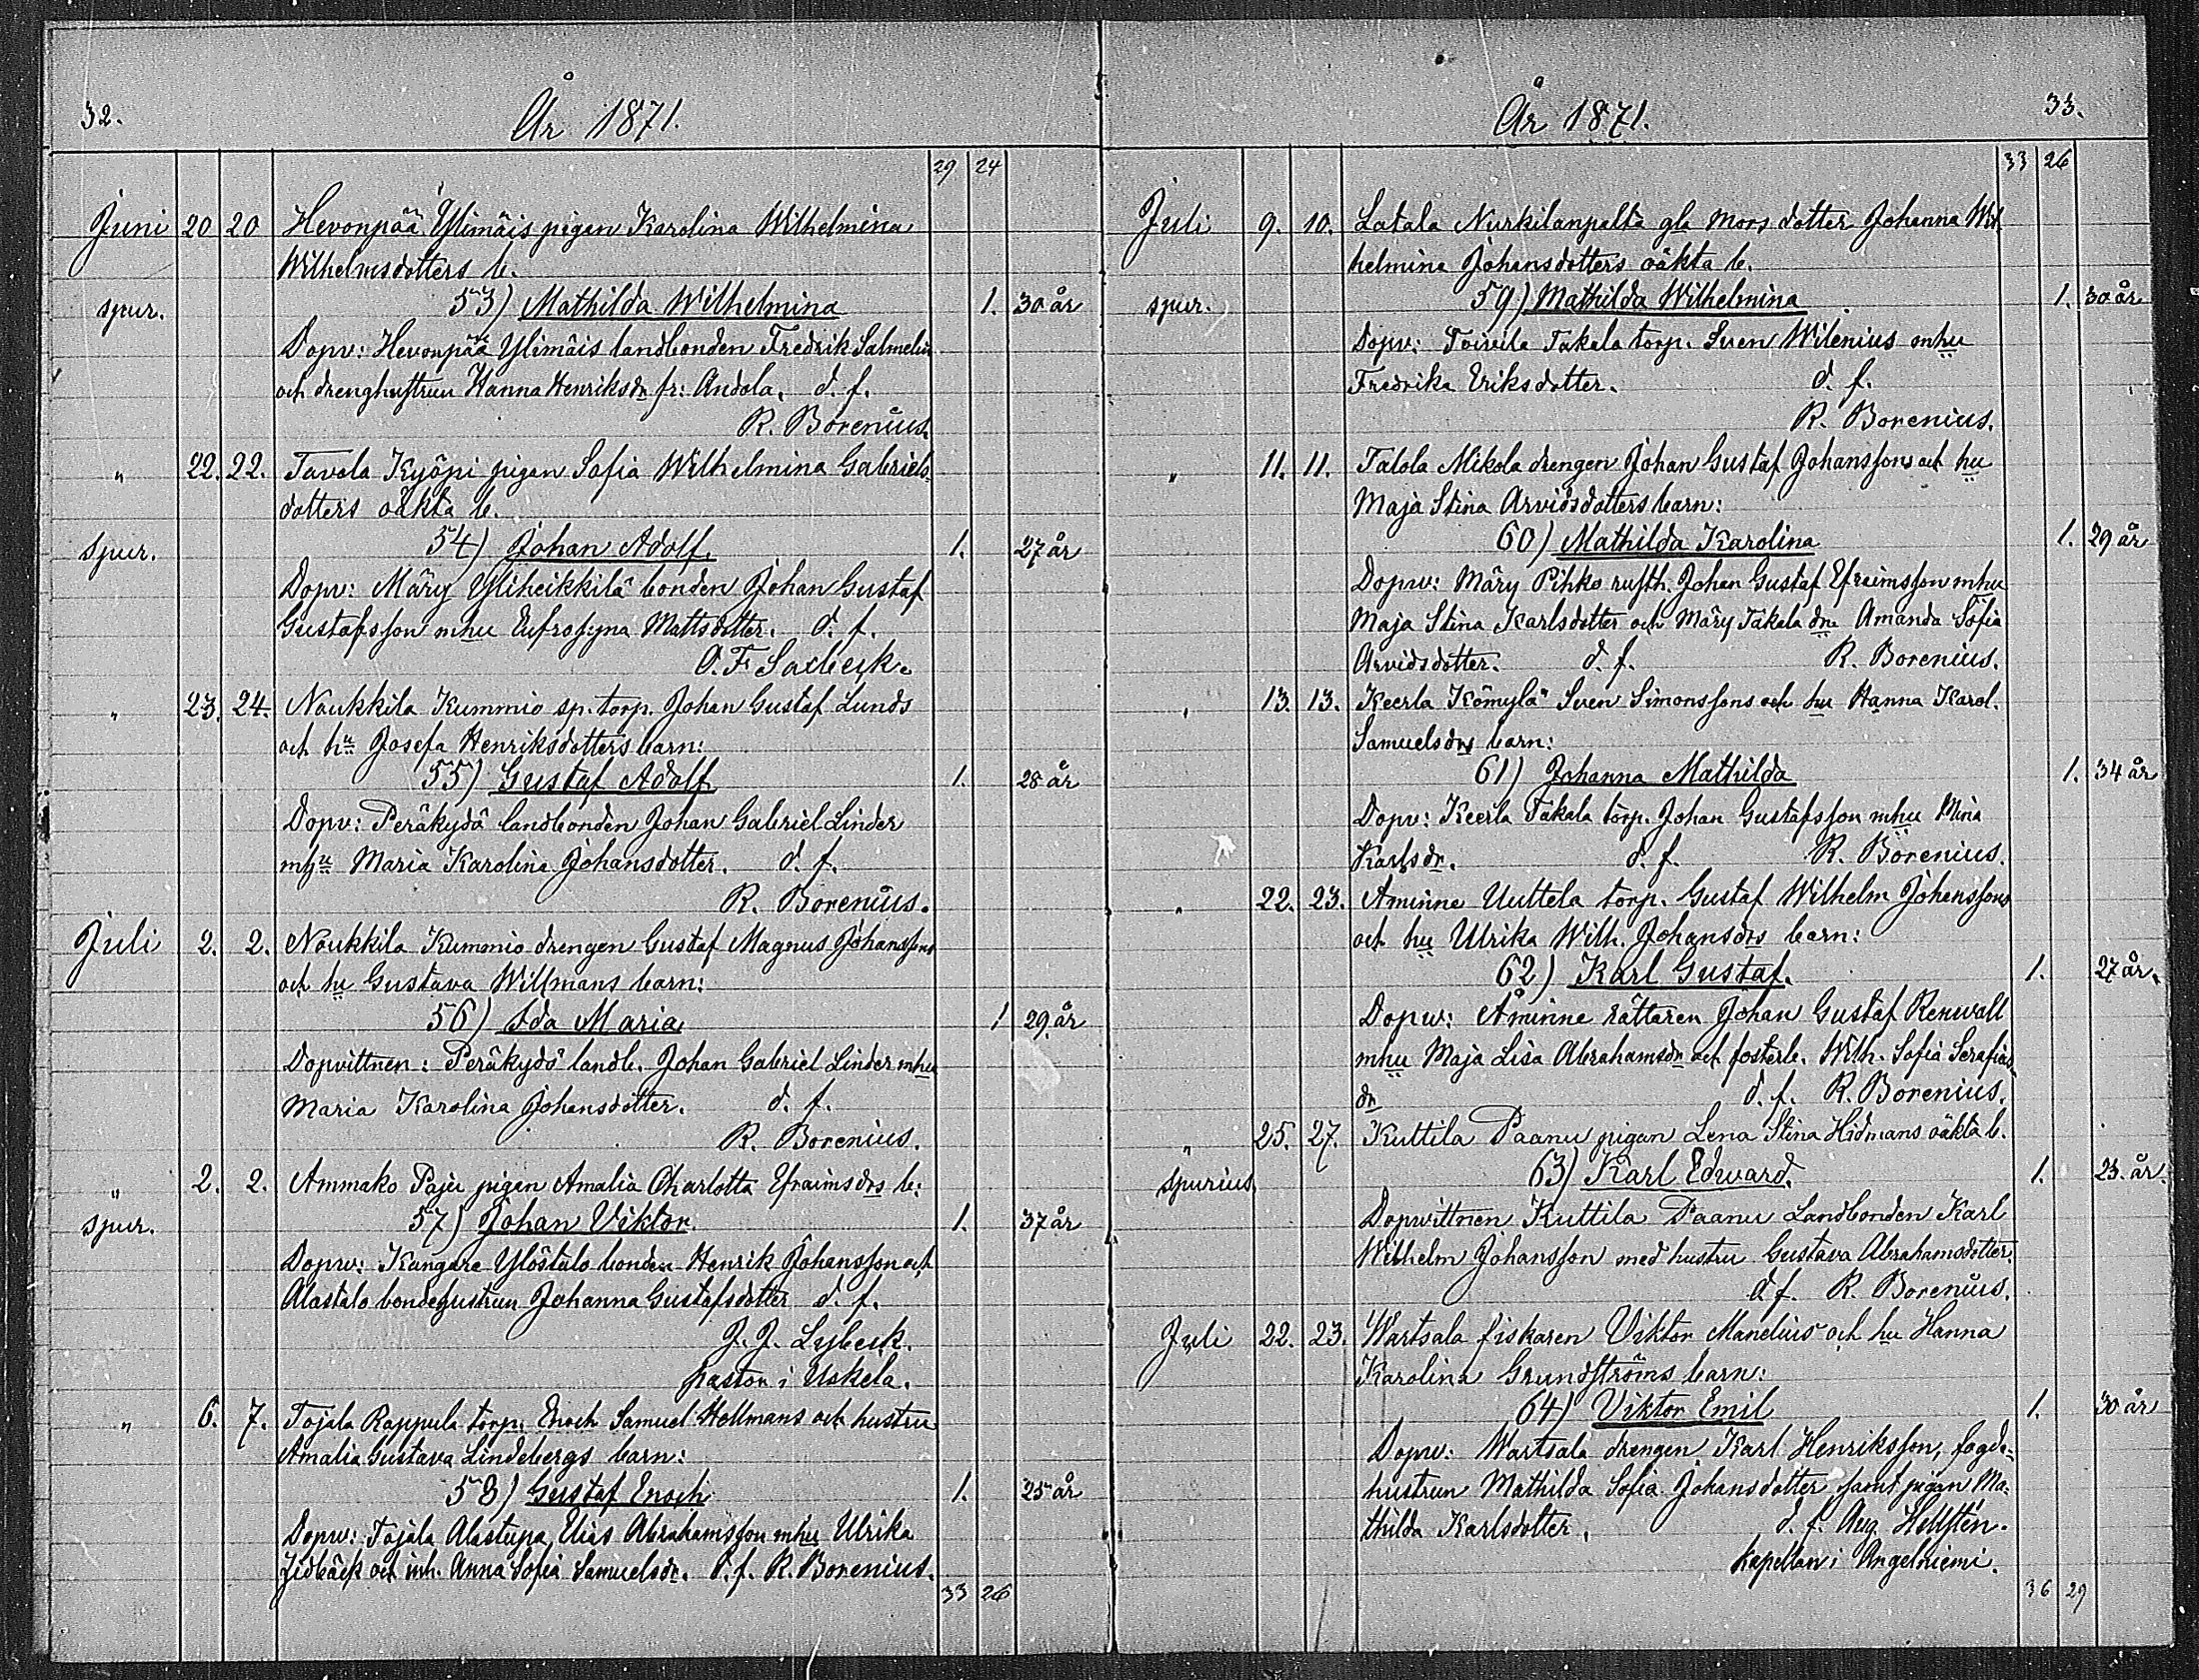 32.
År 1871.
29 24
Juni 20 20 Hevonpää Ylimäis pigan Karolina Wilhelmina
Wilhelmsdotters b.
spur. 53) Mathilda Wilhelmina 1. 30 år
Dopv: Hevonpää Ylimäis landbonden Fredrik Salmelin
och drenghustrun Hanna Henriksdr fr: Andola. d. f.
R. Borenius.
" 22. 22. Tavola Kyöpi pigan Sofia Wilhelmina Gabriels-
dotters oäkta b.
spur. 54) Johan Adolf. 1. 27 år
Dopv: Märy Yliheikkilä bonden Johan Gustaf
Gustafsson mhu Eufrosyna Mattsdotter. d. f.
O. F. Saxbeck.
" 23. 24. Naukkila Kummio sp. torp. Johan Gustaf Lunds
och hu Josefa Henriksdotters barn:
55) Gustaf Adolf 1. 28 år
Dopv: Peräkydö landbonden Johan Gabriel Linder
mhu Maria Karolina Johansdotter. d. f.
R. Borenius.
Juli 2. 2. Naukkila Kummio drengen Gustaf Magnus Johanssons
och hu Gustava Willmans barn:
56) Ida Maria 1 29. år
Dopvittnen: Peräkydö landb. Johan Gabriel Linder mhu
Maria Karolina Johansdotter. d. f.
R. Borenius.
" 2. 2. Ammako Paju pigan Amalia Charlotta Efraimsdrs b:
spur. 57) Johan Viktor 1. 37 år
Dopv: Kangare Ylöstalo bonden Henrik Johansson och
Alastalo bondehustrun Johanna Gustafsdotter d. f.
J. J. Lybeck.
pastor i Uskela.
" 6. 7. Tojala Rappula torp. Enoch Samuel Hellmans och hustru
Amalia Gustava Lindebergs barn:
58) Gustaf Enoch 1. 25 år
Dopv: Tojala Alastupa Elias Abrahamsson mhu Ulrika
Lidbäck och inh. Anna Sofia Samuelsdr. d. f. R. Borenius.
33 26
År 1871.
33.
33 26
Juli 9. 10. Latala Nurkilanpalta gla Mors dotter Johanna Wil
helmina Johansdotters oäkta b.
spur. 59) Mathilda Wilhelmina 1. 30 år
Dopv: Toivila Takala torp. Sven Wilenius mhu
Fredrika Eriksdotter. d. f.
R. Borenius.
" 11. 11. Talola Mikola drengen Johan Gustaf Johanssons och hu
Maja Stina Arvidsdotters barn:
60) Mathilda Karolina 1. 29 år
Dopv: Märy Pihko rusth. Johan Gustaf Efraimsson mhu
Maja Stina Karlsdotter och Märy Takala Amanda Sofia
Arvidsdotter. d. f. R. Borenius.
" 13. 13. Keerla Kömylä Sven Simonssons och hu Hanna Karol.
Samuelsdrs barn:
61) Johanna Mathilda 1. 34 år
Dopv: Keerla Takala torp. Johan Gustafsson mhu Mina
Karlsdr. d. f. R. Borenius.
" 22. 23. Aminne Uuttela torp. Gustaf Wilhelm Johanssons
och hu Ulrika Wilh. Johansdrs barn:
62) Karl Gustaf. 1. 27 år.
Dopv: Åminne rättaren Johan Gustaf Renwall
mhu Maja Lisa Abrahamsdr och fosterb. Wilh. Sofia Serafias
dr d. f. R. Borenius.
" 25. 27. Kuttila Paanu pigan Lena Stina Hidmans oäkta b.
spurius 63) Karl Edward. 1. 23. år.
Dopvittnen Kuttila Paanu Landbonden Karl
Wilhelm Johansson med hustru Gustava Abrahamsdotter.
d. f. R. Borenius.
Juli 22. 23. Wartsala fiskaren Viktor Manelius och hu Hanna
Karolina Grundströms barn:
64) Viktor Emil 1. 30 år
Dopv: Wartsala drengen Karl Henriksson, fogde-
hustrun Mathilda Sofia Johansdotter samt pigan Ma-
thilda Karlsdotter. d. f. Aug. Hellstén.
Kapellan i Angelniemi.
36 29